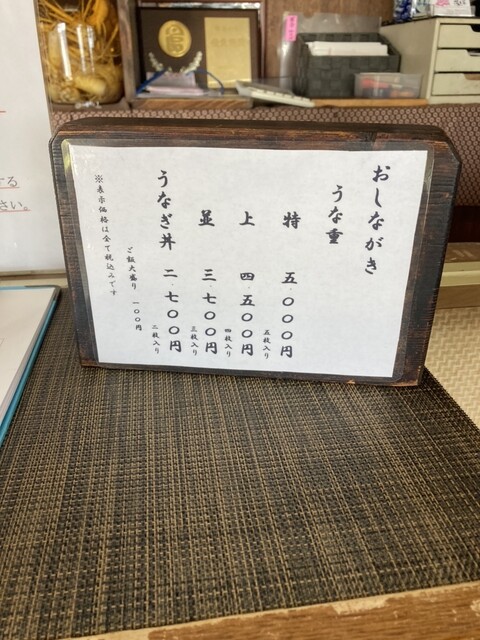 おしながき
うな重
特 五.〇〇〇円
五枚入り
上 四.五〇〇円
四枚入り
並 三.七〇〇円
三枚入り
うなぎ丼 二.七〇〇円
二枚入り
ご飯大盛り 一〇〇円
※表示価格は全て税込みです
する
さい。